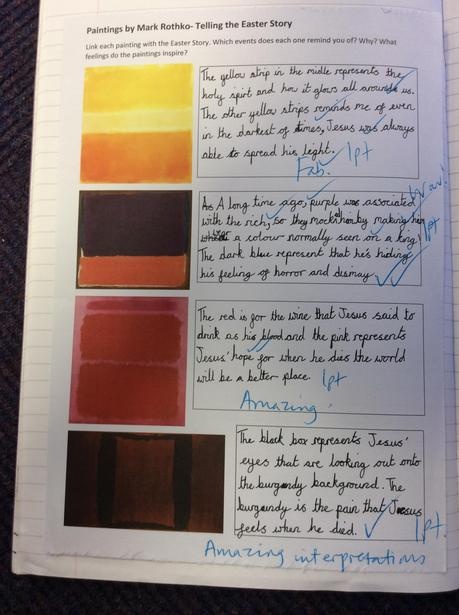 Paintings by Mark Rothko- Telling the Easter Story
Link each painting with the Easter Story. Which events does each one remind you of? Why? What
feelings do the paintings inspire?
The yellow strip in the midle represents the
holy spirt and how it glows all around us.
The other yellow strips reminds me of even
in the darkest of times, Jesus was always
able to spread his light.
Fab. 1pt
As A long time ago, purple was associated
with the rich, so they mocked him by making him
wear a colour normally seen on a king.
The dark blue represent that he's hiding
his feeling of horror and dismay.
Wow!
1pt
The red is for the wine that Jesus said to
drink as his blood and the pink represents
Jesus' hope for when he dies the world
will be a better place. 1pt
Amazing.
The black box represents Jesus'
eyes that are looking out onto
the burgundy background. The
burgundy is the pain that Jesus
feels when he died. 1pt.
Amazing interpretations